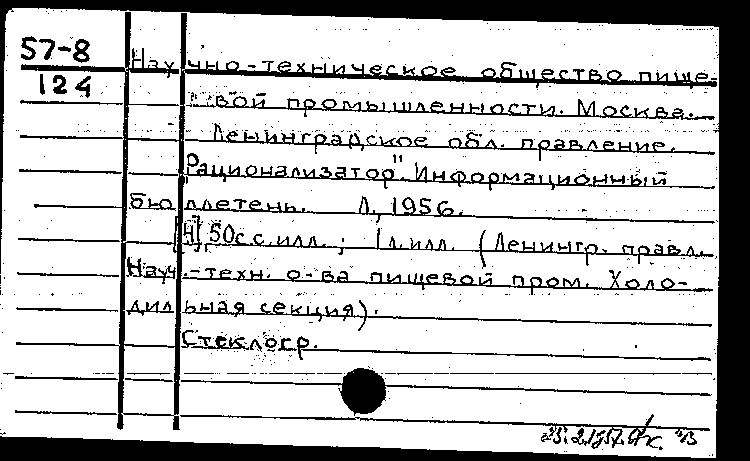 57-8
124
Научно-техническое общество пище-
вой промышленности. Москва.
Ленинградское обл. правление.
"Рационализатор". Информационный
бюллетень. Л., 1956.
[4], 50 с. с илл.; 1 л. илл. (Ленингр. правл.
Науч.-техн. о-ва пищевой пром. Холо-
дильная секция).
Стеклогр.